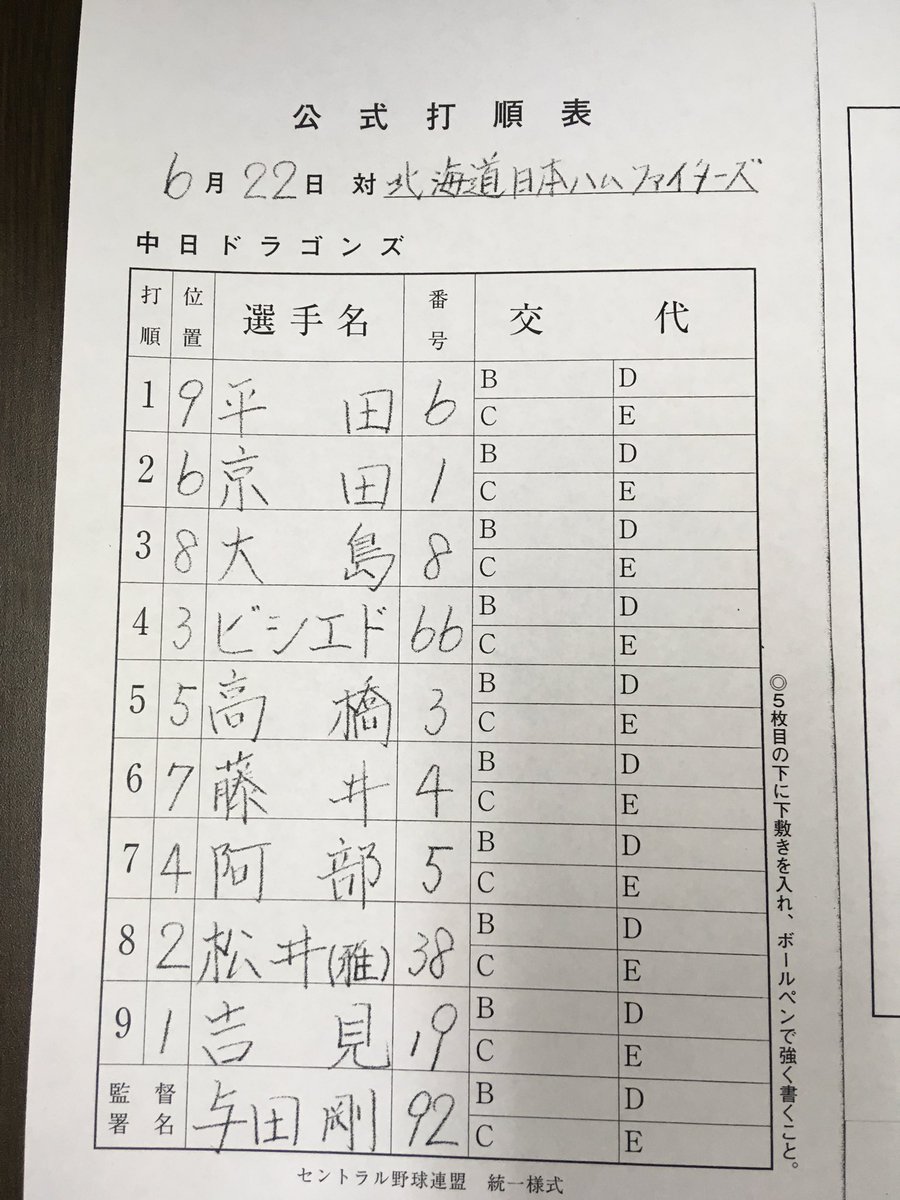 公式打順表
6月22日 対 北海道日本ハムファイターズ
中日ドラゴンズ
打順 位置 選手名 番号 交代
1 9 平田 6 B D
C E
2 6 京田 1 B D
C E
3 8 大島 8 B D
C E
4 3 ビシエド 66 B D
C E
5 5 高橋 3 B D
C E
6 7 藤井 4 B D
C E
7 4 阿部 5 B D
C E
8 2 松井(雅) 38 B D
C E
9 1 吉見 19 B D
C E
監督署名 与田剛 92 B D
C E
◎5枚目の下に下敷きを入れ、ボールペンで強く書くこと。
セントラル野球連盟 統一様式